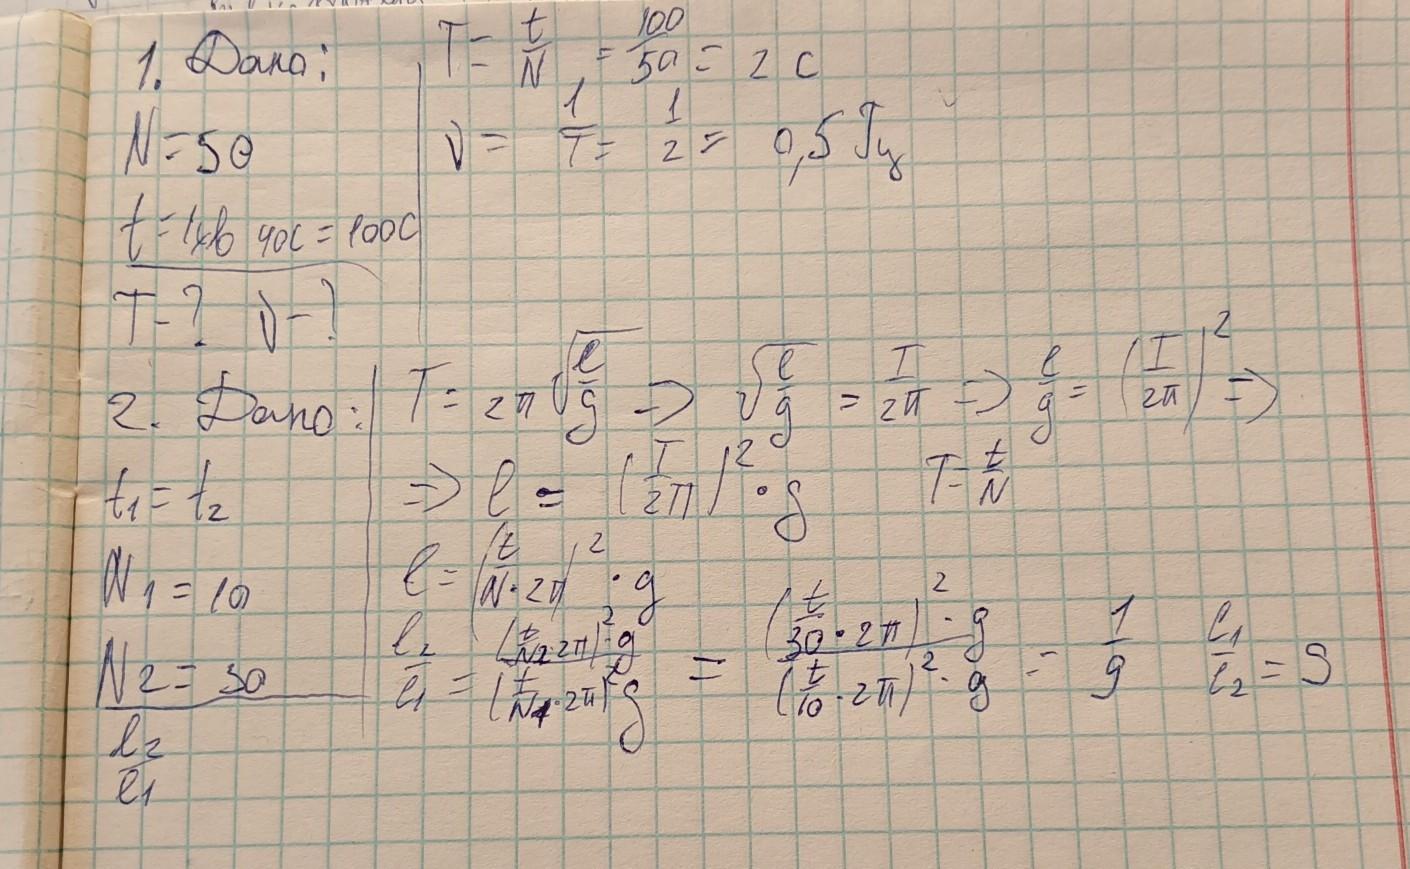 1. Дано:
N = 50
t = 1хв 40с = 100с
T - ? ν - ?
T = t/N = 100/50 = 2 с
ν = 1/T = 1/2 = 0,5 Гц
2. Дано:
t₁ = t₂
N₁ = 10
N₂ = 30
l₂/l₁
T = 2π√(l/g) => √(l/g) = T/2π => l/g = (T/2π)² =>
=> l = (T/2π)² · g T = t/N
l = (t/N · 2π)² · g
l₂/l₁ = (t/N₂ · 2π)² · g / (t/N₁ · 2π)² g = (t/30 · 2π)² · g / (t/10 · 2π)² · g = 1/9 l₁/l₂ = 9